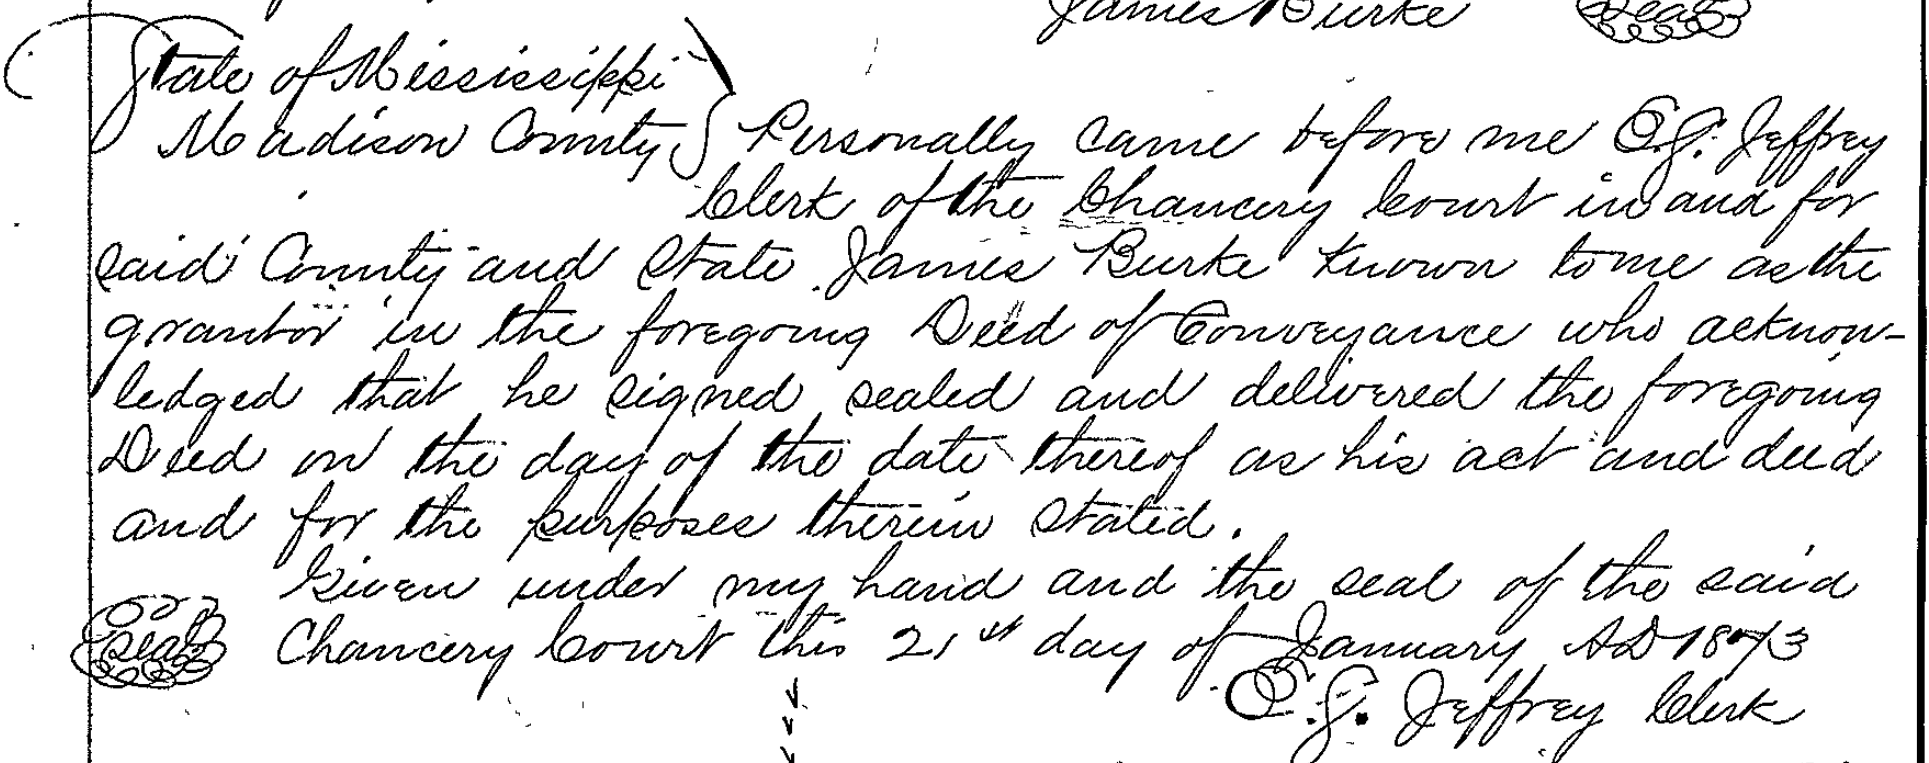 James Burke Seal
State of Mississippi
Madison County } Personally came before me E. G. Jeffrey
Clerk of the Chancery Court in and for
said County and State James Burke known to me as the
grantor in the foregoing Deed of Conveyance who acknow-
ledged that he signed sealed and delivered the foregoing
Deed on the day of the date thereof as his act and deed
and for the purposes therein stated.
Given under my hand and the seal of the said
Seal Chancery Court this 21st day of January AD 1873
E. G. Jeffrey Clerk